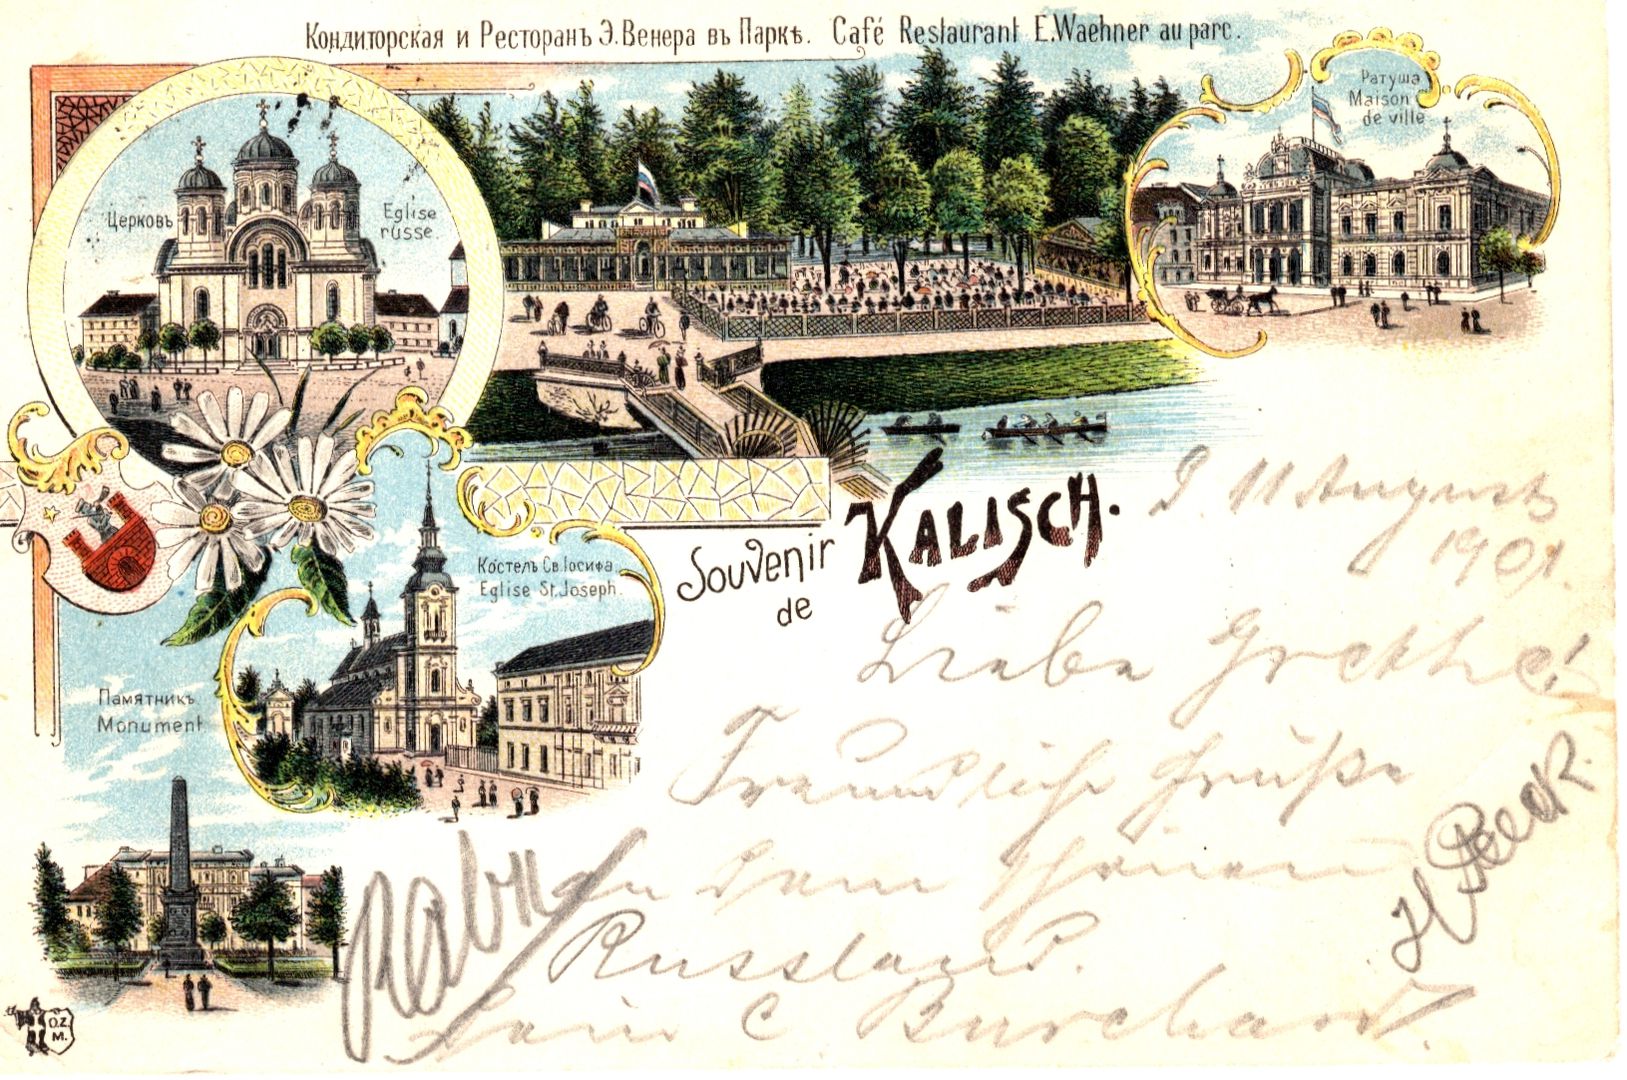 Кондиторская и Ресторанъ Э. Венера въ Паркѣ. Café Restaurant E. Waehner au parc.
Церковъ
Eglise
russe.
Ратуша
Maison
de ville
Костелъ Св. Іосифа.
Eglise St. Joseph.
Souvenir
de
KALISCH.
Памятникъ
Monument
O.Z.
M.
d. 11 August
1901.
Liebe Grethe!
Freundliche Grüße
aus dem schönen
Russland.
C Burchard.